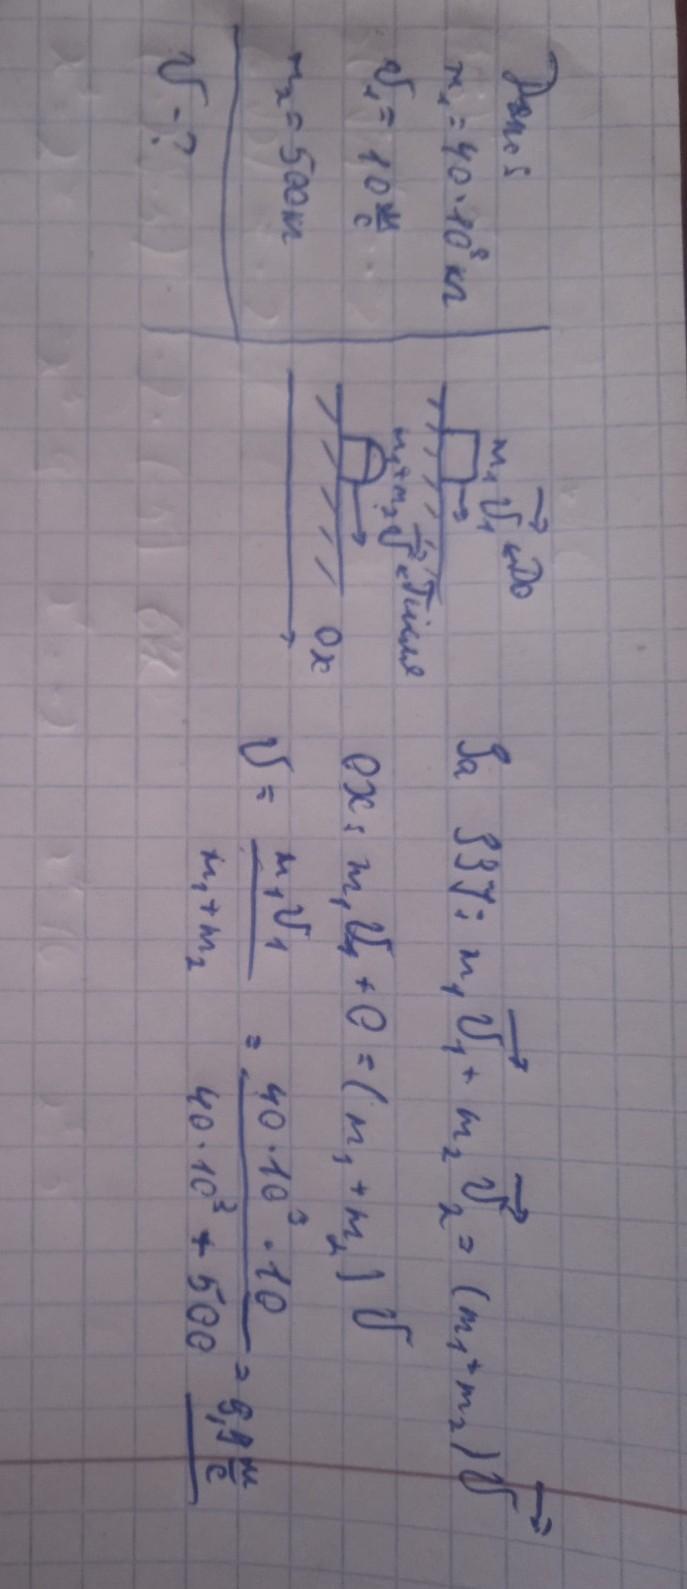 Дано:
m₁ = 40·10³ кг
v₁ = 10 м/с
m₂ = 500 кг
v - ?
m₁ v⃗₁ "До
m₁+m₂ v⃗ "Після
Ox
За ЗЗІ: m₁v⃗₁ + m₂v⃗₂ = (m₁+m₂)v⃗
OX: m₁v₁ + 0 = (m₁+m₂)v
v = m₁v₁ / (m₁+m₂) = 40·10³·10 / (40·10³ + 500) = 9,9 м/с